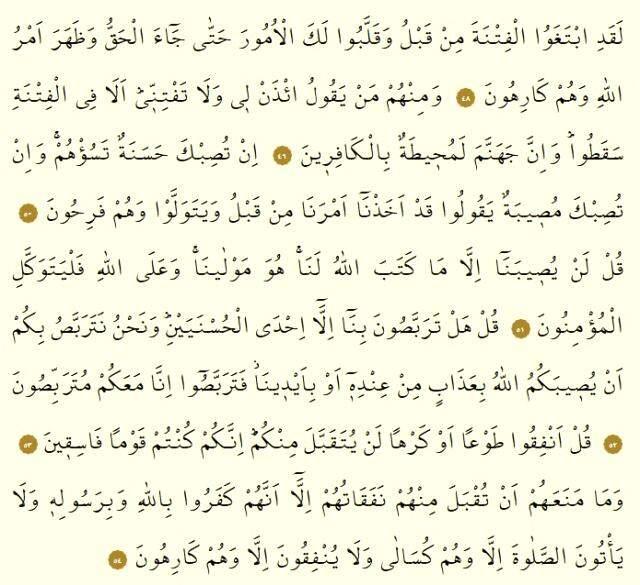 لَقَدِ ابْتَغَوُا الْفِتْنَةَ مِنْ قَبْلُ وَقَلَّبُوا لَكَ الْاُمُورَ حَتّٰى جَٓاءَ الْحَقُّ وَظَهَرَ اَمْرُ
اللهِ وَهُمْ كَارِهُونَ ٤٨ وَمِنْهُمْ مَنْ يَقُولُ ائْذَنْ ل۪ي وَلَا تَفْتِنّ۪يۜ اَلَا فِي الْفِتْنَةِ
سَقَطُواۜ وَاِنَّ جَهَنَّمَ لَمُح۪يطَةٌ بِالْكَافِر۪ينَ ٤٩ اِنْ تُصِبْكَ حَسَنَةٌ تَسُؤْهُمْۚ وَاِنْ
تُصِبْكَ مُص۪يبَةٌ يَقُولُوا قَدْ اَخَذْنَٓا اَمْرَنَا مِنْ قَبْلُ وَيَتَوَلَّوْا وَهُمْ فَرِحُونَ ٥٠
قُلْ لَنْ يُص۪يبَنَٓا اِلَّا مَا كَتَبَ اللهُ لَنَاۚ هُوَ مَوْلٰينَاۚ وَعَلَى اللهِ فَلْيَتَوَكَّلِ
الْمُؤْمِنُونَ ٥١ قُلْ هَلْ تَرَبَّصُونَ بِنَٓا اِلَّٓا اِحْدَى الْحُسْنَيَيْنِۜ وَنَحْنُ نَتَرَبَّصُ بِكُمْ
اَنْ يُص۪يبَكُمُ اللهُ بِعَذَابٍ مِنْ عِنْدِه۪ٓ اَوْ بِاَيْد۪ينَاۘ فَتَرَبَّصُٓوا اِنَّا مَعَكُمْ مُتَرَبِّصُونَ
٥٢ قُلْ اَنْفِقُوا طَوْعًا اَوْ كَرْهًا لَنْ يُتَقَبَّلَ مِنْكُمْۜ اِنَّكُمْ كُنْتُمْ قَوْمًا فَاسِق۪ينَ ٥٣
وَمَا مَنَعَهُمْ اَنْ تُقْبَلَ مِنْهُمْ نَفَقَاتُهُمْ اِلَّٓا اَنَّهُمْ كَفَرُوا بِاللهِ وَبِرَسُولِه۪ وَلَا
يَأْتُونَ الصَّلٰوةَ اِلَّا وَهُمْ كُسَالٰى وَلَا يُنْفِقُونَ اِلَّا وَهُمْ كَارِهُونَ ٥٤